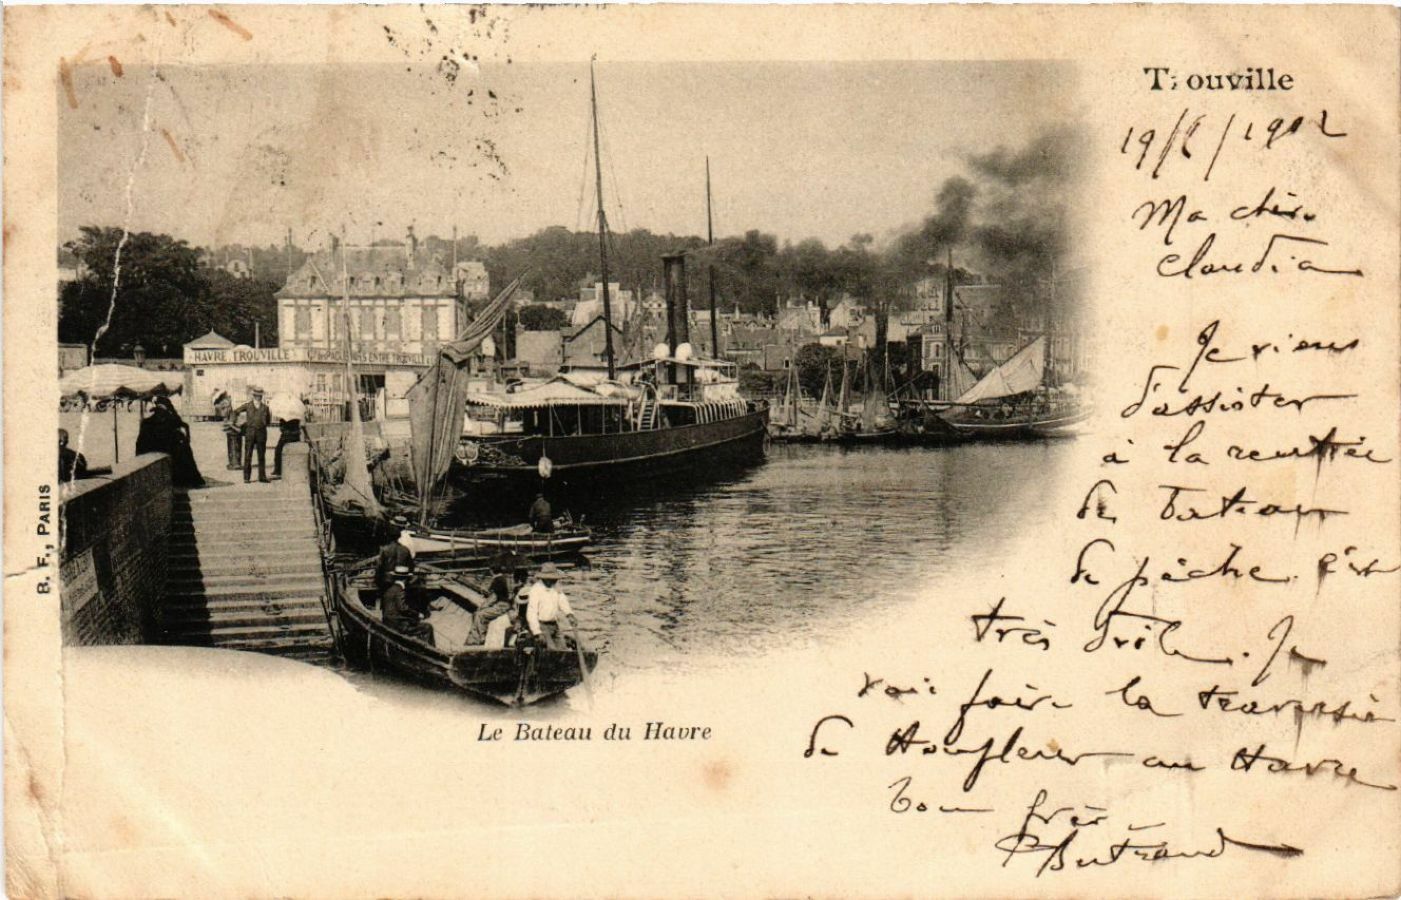 Trouville
19/8/1902
Ma chère
Claudia
Je viens
d'assister
à la rentrée
de bateau
de pêche. C'est
très drôle. Je
vais faire la traversée
de Honfleur au Havre
Ton frère
Bertrand
HAVRE-TROUVILLE
PAQUEBOTS ENTRE TROUVILLE
B. F., PARIS
Le Bateau du Havre